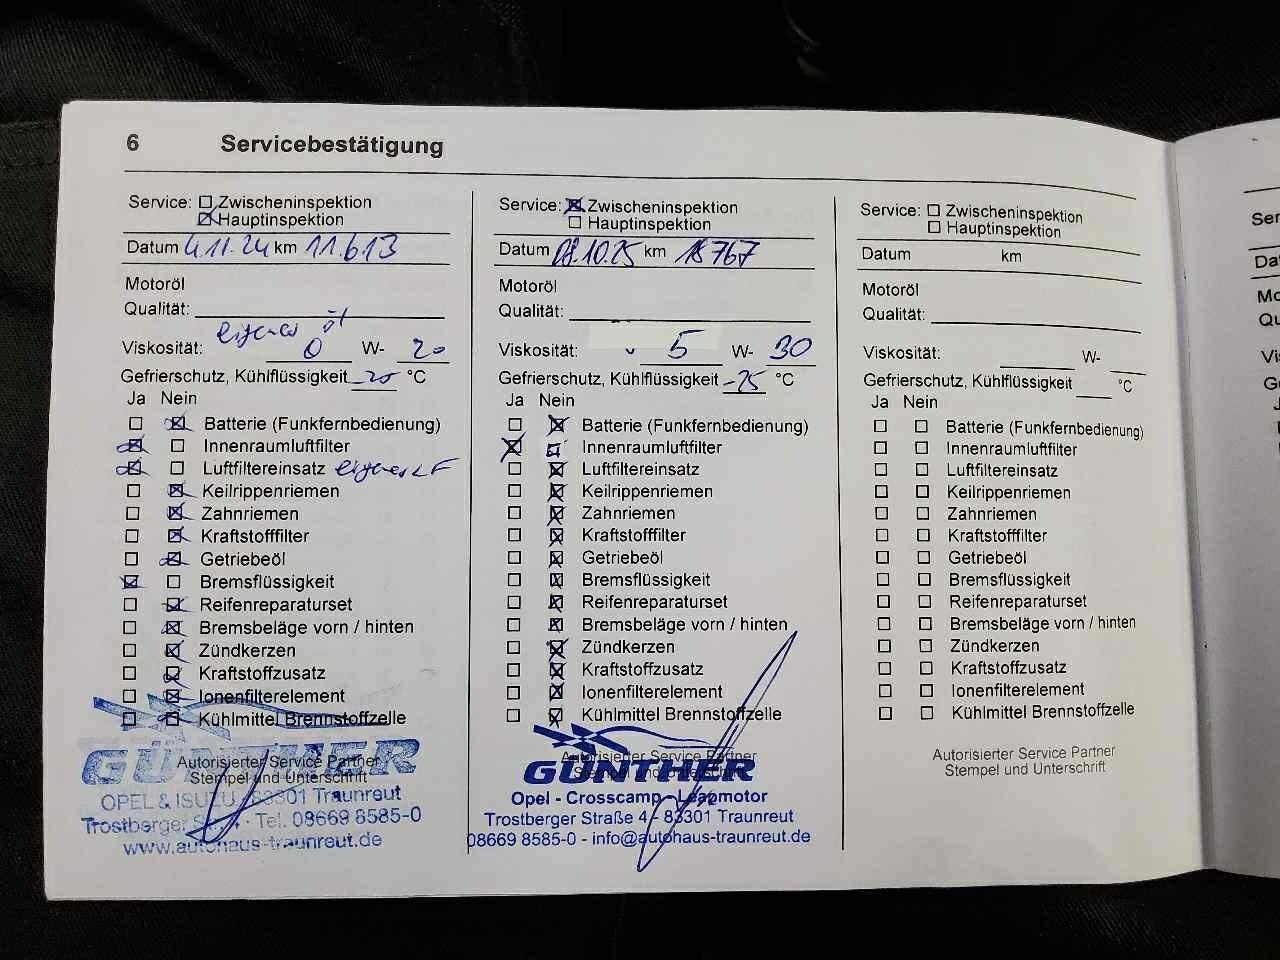 6 Servicebestätigung
Service: Zwischeninspektion
Hauptinspektion
Datum 4.11.24 km 11.613
Motoröl
Qualität:
eigenes öl
Viskosität: 0 W- 20
Gefrierschutz, Kühlflüssigkeit -20 °C
Ja Nein
Batterie (Funkfernbedienung)
Innenraumluftfilter
Luftfiltereinsatz eigener LF
Keilrippenriemen
Zahnriemen
Kraftstofffilter
Getriebeöl
Bremsflüssigkeit
Reifenreparaturset
Bremsbeläge vorn / hinten
Zündkerzen
Kraftstoffzusatz
Ionenfilterelement
Kühlmittel Brennstoffzelle
GÜNTHER
Autorisierter Service Partner
Stempel und Unterschrift
OPEL & ISUZU 83301 Traunreut
Trostberger Str. 4 · Tel. 08669 8585-0
www.autohaus-traunreut.de
Service: Zwischeninspektion
Hauptinspektion
Datum 28.10.25 km 18767
Motoröl
Qualität:
Viskosität: 5 W- 30
Gefrierschutz, Kühlflüssigkeit -25 °C
Ja Nein
Batterie (Funkfernbedienung)
Innenraumluftfilter
Luftfiltereinsatz
Keilrippenriemen
Zahnriemen
Kraftstofffilter
Getriebeöl
Bremsflüssigkeit
Reifenreparaturset
Bremsbeläge vorn / hinten
Zündkerzen
Kraftstoffzusatz
Ionenfilterelement
Kühlmittel Brennstoffzelle
Autorisierter Service Partner
GÜNTHER
Stempel und Unterschrift
Opel - Crosscamp - Leapmotor
Trostberger Straße 4 - 83301 Traunreut
08669 8585-0 - info@autohaus-traunreut.de
Service: Zwischeninspektion
Hauptinspektion
Datum km
Motoröl
Qualität:
Viskosität: W-
Gefrierschutz, Kühlflüssigkeit °C
Ja Nein
Batterie (Funkfernbedienung)
Innenraumluftfilter
Luftfiltereinsatz
Keilrippenriemen
Zahnriemen
Kraftstofffilter
Getriebeöl
Bremsflüssigkeit
Reifenreparaturset
Bremsbeläge vorn / hinten
Zündkerzen
Kraftstoffzusatz
Ionenfilterelement
Kühlmittel Brennstoffzelle
Autorisierter Service Partner
Stempel und Unterschrift